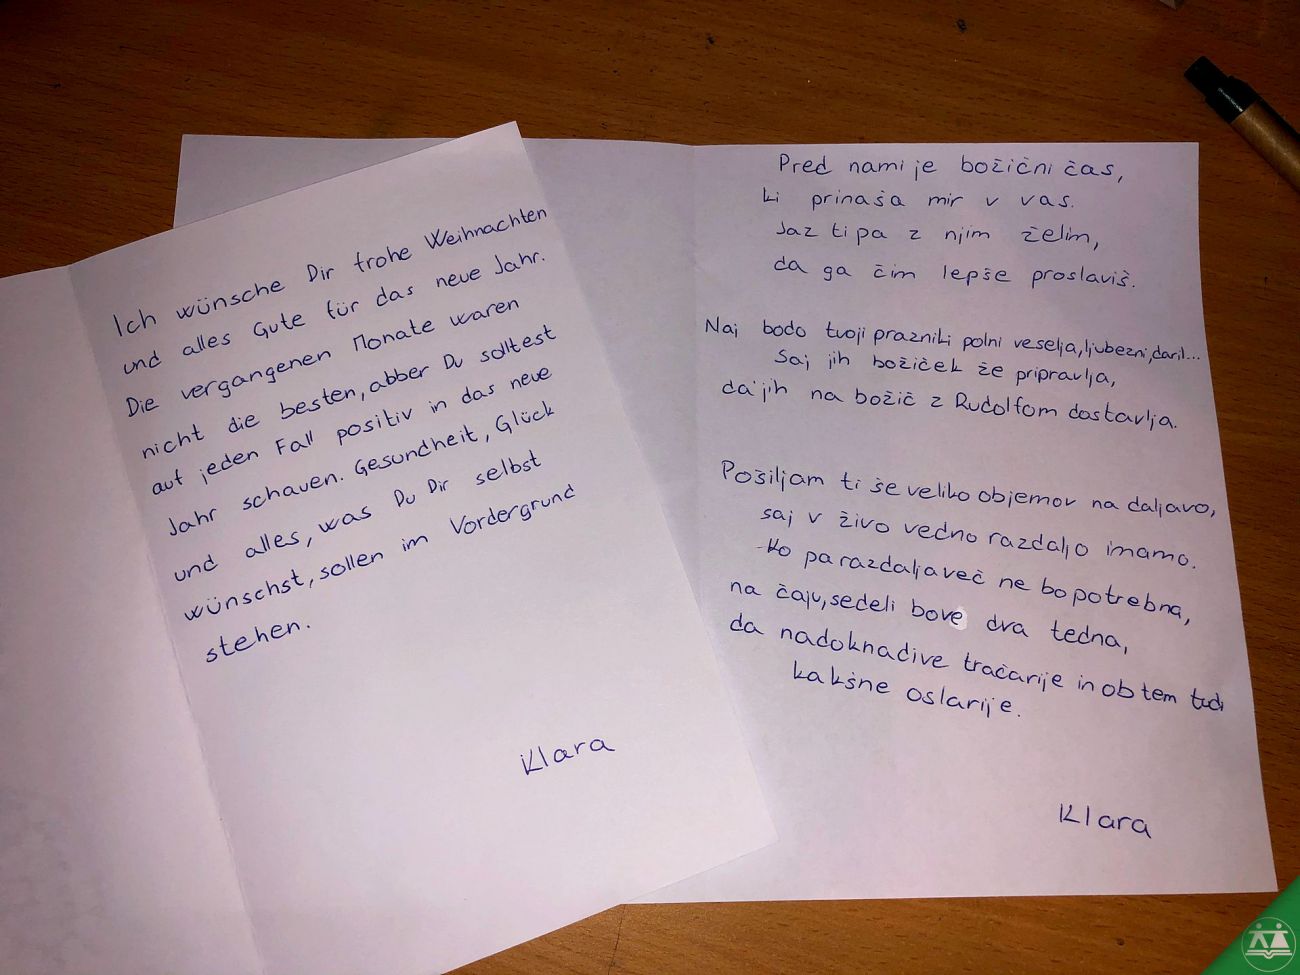 Ich wünsche Dir frohe Weihnachten
und alles Gute für das neue Jahr.
Die vergangenen Monate waren
nicht die besten, abber Du solltest
auf jeden Fall positiv in das neue
Jahr schauen. Gesundheit, Glück
und alles, was Du Dir selbst
wünschst, sollen im Vordergrund
stehen.
Klara
Pred nami je božični čas,
ki prinaša mir v vas.
Jaz ti pa z njim želim,
da ga čim lepše proslaviš.
Naj bodo tvoji prazniki polni veselja, ljubezni, daril...
Saj jih božiček že pripravlja,
da jih na božič z Rudolfom dostavlja.
Pošiljam ti še veliko objemov na daljavo,
saj v živo vedno razdaljo imamo.
Ko pa razdalja več ne bo potrebna,
na čaju, sedeli bove dva tedna,
da nadoknadive tračarije in ob tem tudi
kakšne oslarije.
Klara